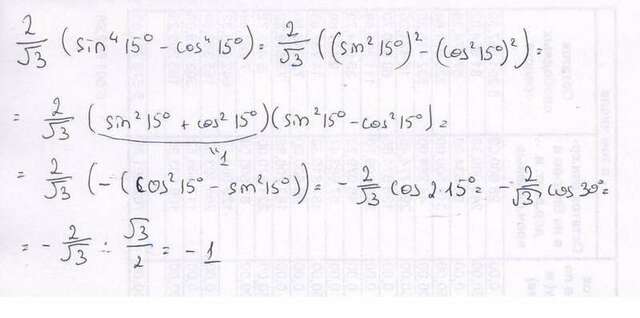 2/√3 (sin⁴ 15° - cos⁴ 15°) = 2/√3 ((sin² 15°)² - (cos² 15°)²) =
= 2/√3 (sin² 15° + cos² 15°)(sin² 15° - cos² 15°) =
"1
= 2/√3 (-(cos² 15° - sin² 15°)) = - 2/√3 cos 2·15° = - 2/√3 cos 30° =
= - 2/√3 ÷ √3/2 = - 1